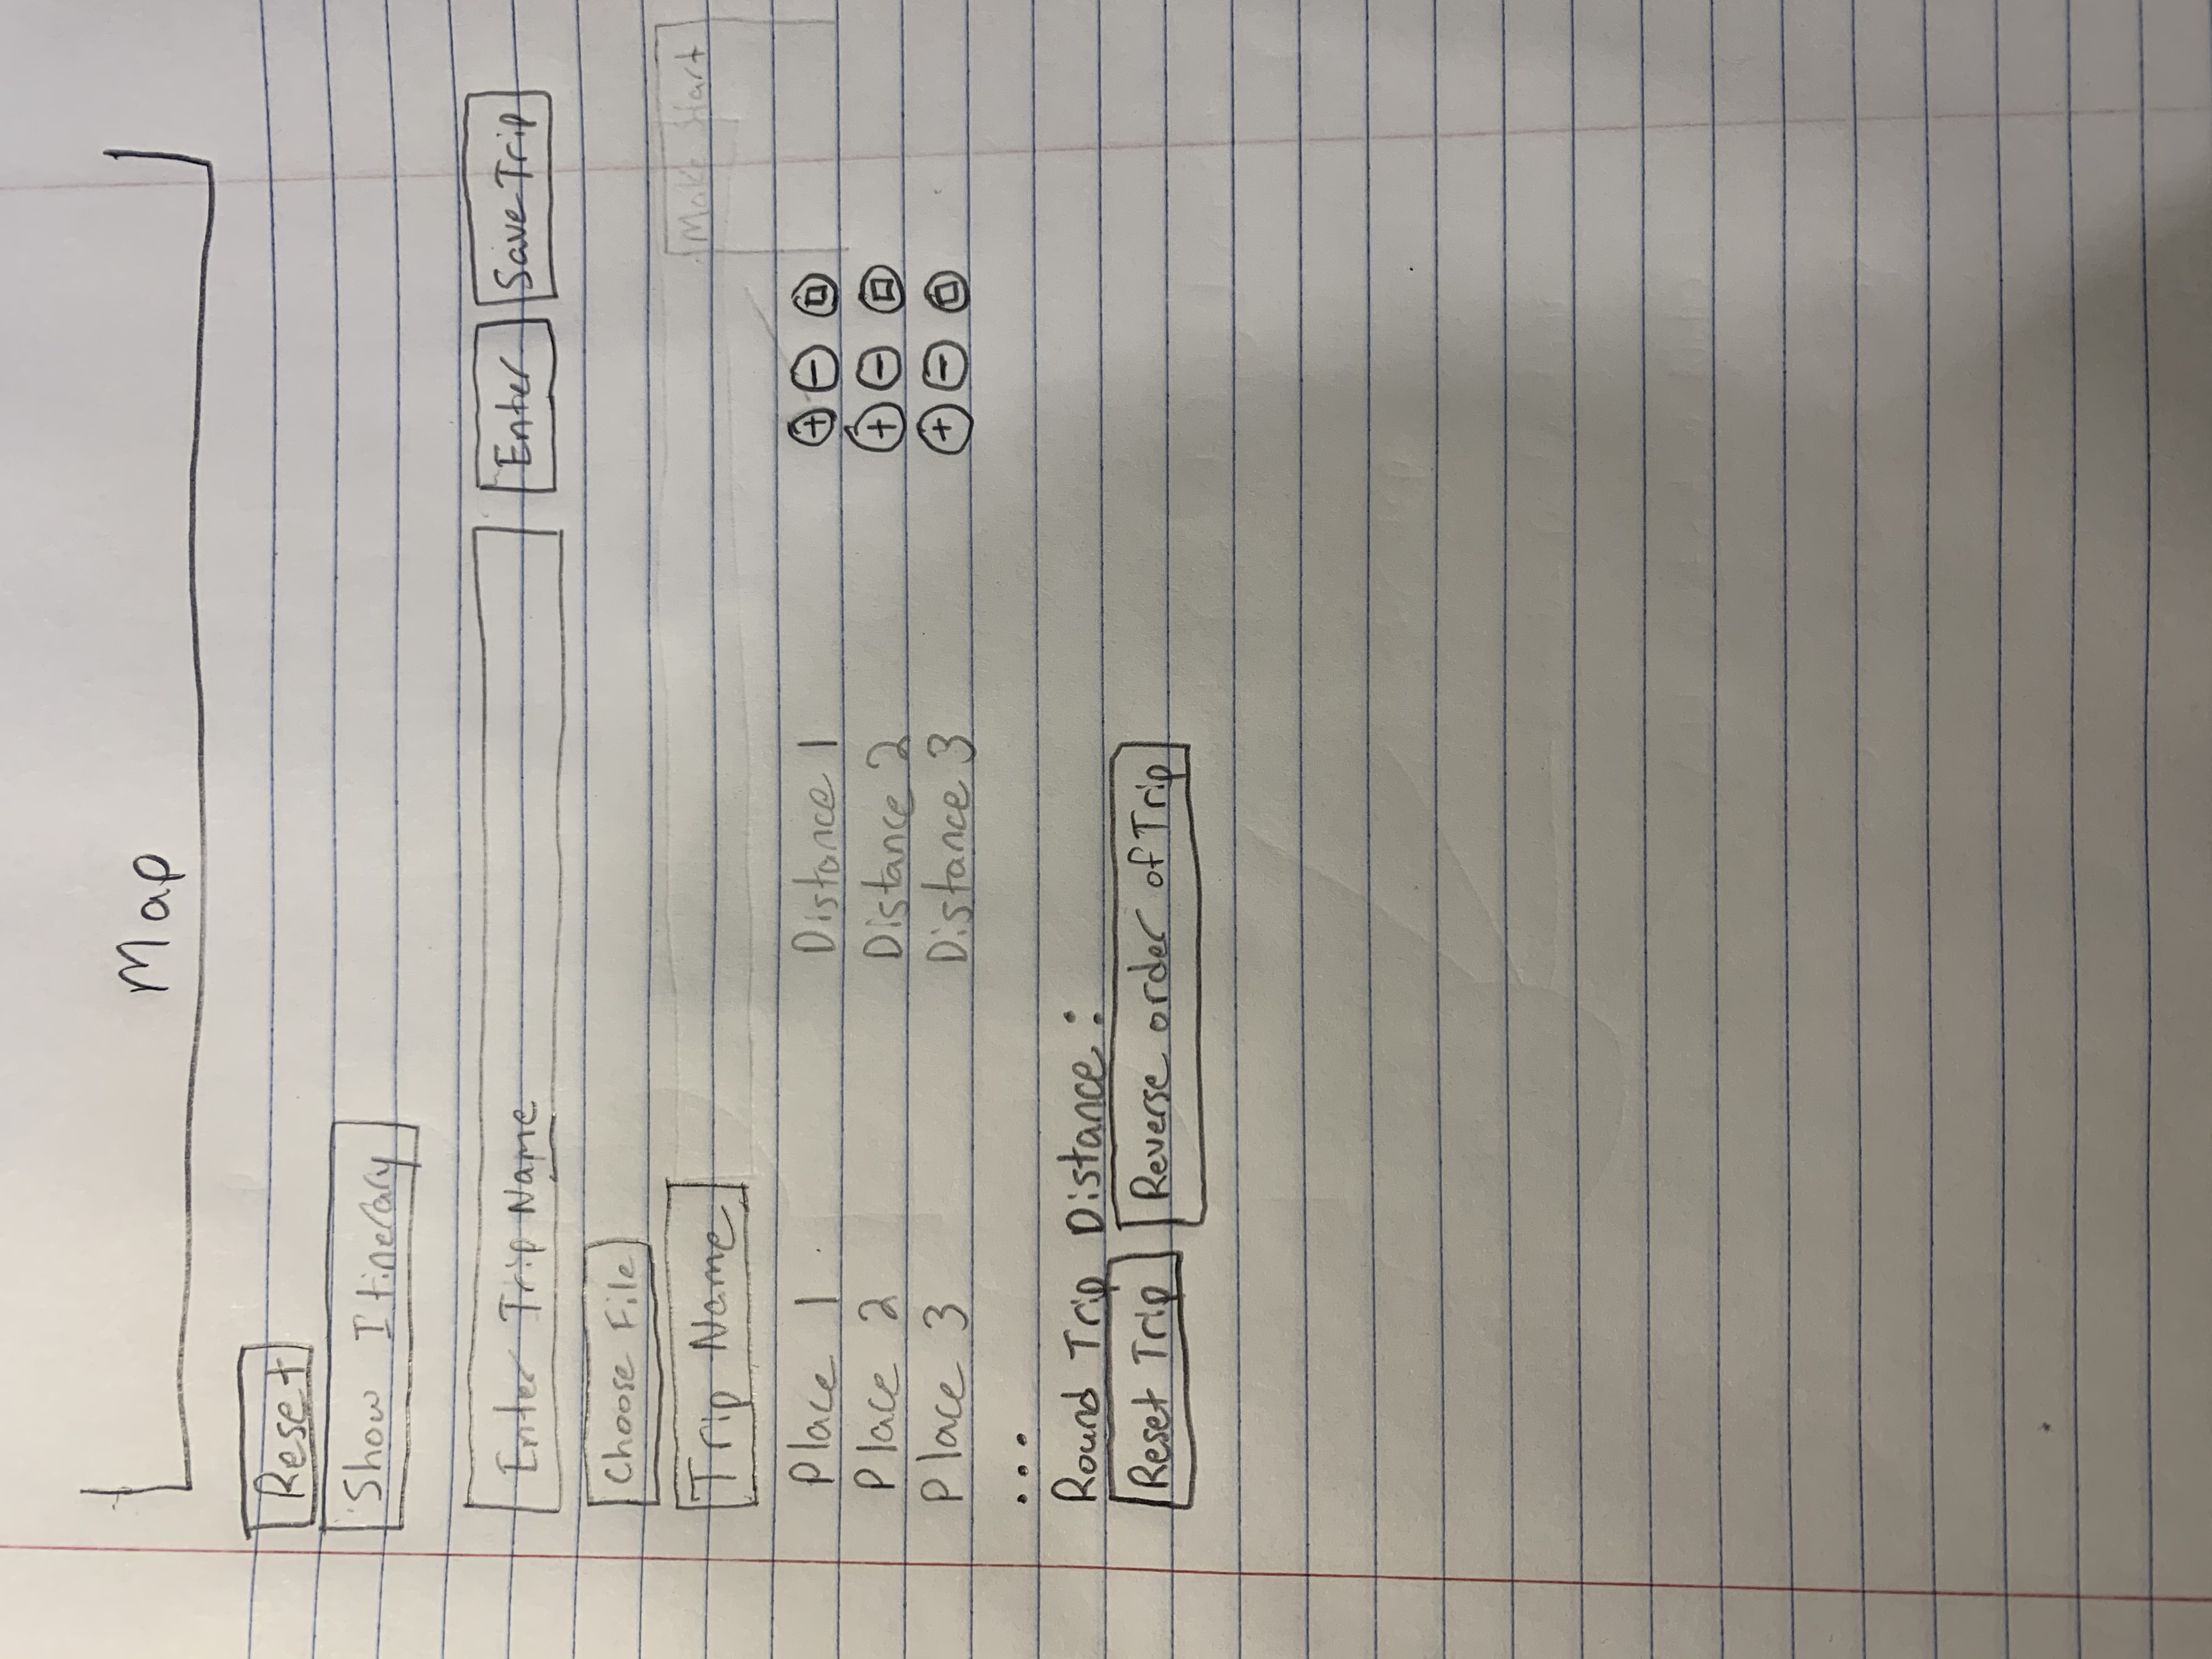 Map
Reset
Show Itinerary
Enter Trip Name Enter Save Trip
Choose File
Trip Name Make Start
Place 1 Distance 1 + -
Place 2 Distance 2 + -
Place 3 Distance 3 + -
...
Round Trip Distance:
Reset Trip Reverse order of Trip